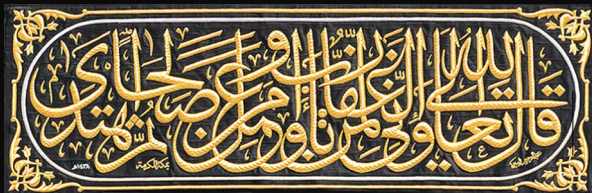 قال الله تعالى وإني لغفار لمن تاب وآمن وعمل صالحا ثم اهتدى
بمكة المكرمة